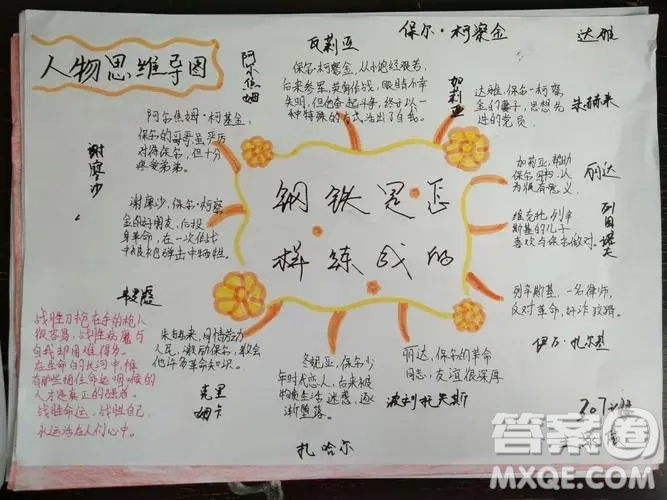 人物思维导图
瓦莉亚
保尔·柯察金
达雅
保尔·柯察金,从小饱经艰苦,
后来参军,英勇作战,眼睛不幸
失明,但他奋起斗争,终于以一
种特殊的方式活出了自我。
加莉亚
达雅,保尔·柯察
金的妻子,思想先
进的党员。
朱赫来
阿尔焦姆
阿尔焦姆·柯察金,
保尔的哥哥,虽严厉
对待保尔,但十分
疼爱弟弟。
谢廖沙
谢廖沙,保尔·柯察
金的好朋友,后投
身革命,在一次作战
中被
弹击中牺牲。
钢铁是怎
样练成的
加莉亚,帮助
保尔
认
为很有意义。
丽达
维克托,列辛
斯基的儿子
喜欢与保尔做对。
列辛斯基,一名律师,
反对革命,奸诈狡猾。
伊万·扎尔基
战胜刀枪在手的枪人
很容易,战胜病魔与
自我却困难得多。
在生命的长河中,唯
有那些
命运咽喉的
人才是真正的强者。
战胜命运,战胜自己,
永远活在人们心中。
朱赫来,同情劳动
人民,激励保尔,教会
他许多革命知识。
克里
姆卡
冬妮亚,保尔少
年时代恋人,后来被
物质生活迷惑,逐
渐堕落。
丽达,保尔的革命
同志,友谊很深厚
波利托夫斯
扎哈尔
307班
答案圈
MXQE.COM